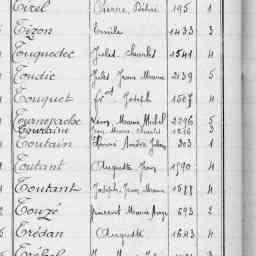 Tirel Pierre, Désiré 195 1
Tizon Emile 1433 3
Touquedec Jules, Charles 1541 4
Toudic Jules Jean Marie 2139 5
Touquet frois Joseph 1507 4
Tournepache Louis, Marie Michel 2296 5
Toutain Jean Marie Charles 1236 3
Toutain André 303 1
Toutant Auguste Jean 1590 4
Toutant Joseph Jean Marie 1588 4
Touzé Vincent Marie Ange 693 2
Trédan Auguste 1643 4